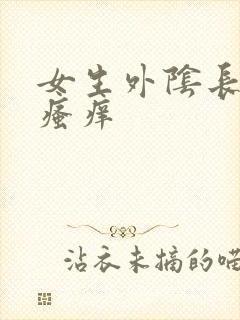 女生外陰長
瘙痒
沾衣未摘的喵